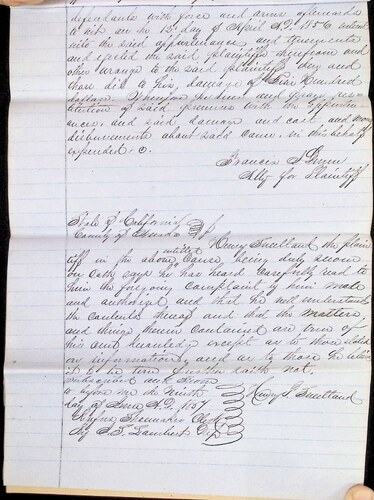 defendants with force and arms afterwards
to wit on the 12th day of April A.D. 1856 entered
into the said appurtenances and tenements
and ejected the said plaintiff therefrom and
other wrongs to the said plaintiff then and
there did to his damage of Four Hundred
dollars. Wherefore he sues and prays res-
titution of said premises with the appurten-
ances and said damage and cost and
disbursements about said cause in this behalf
expended &c.
Francis J
Atty for Plaintiff
State of California
County of
Henry Smetland the plain
tiff in the above entitled cause being duly sworn
on Oath says he has heard carefully read to
him the foregoing complaint of him made
and authorized, and that he well understands
the contents thereof and that the matters
and things therein contained are true of
his own knowledge except as to those stated
on information, and as to those he believes
it to be true further saith not.
Subscribed and Sworn
to before me the Ninth
day of June A.D. 1857
Clerk
By S. F. Lambert D.C.
Henry S. Smetland